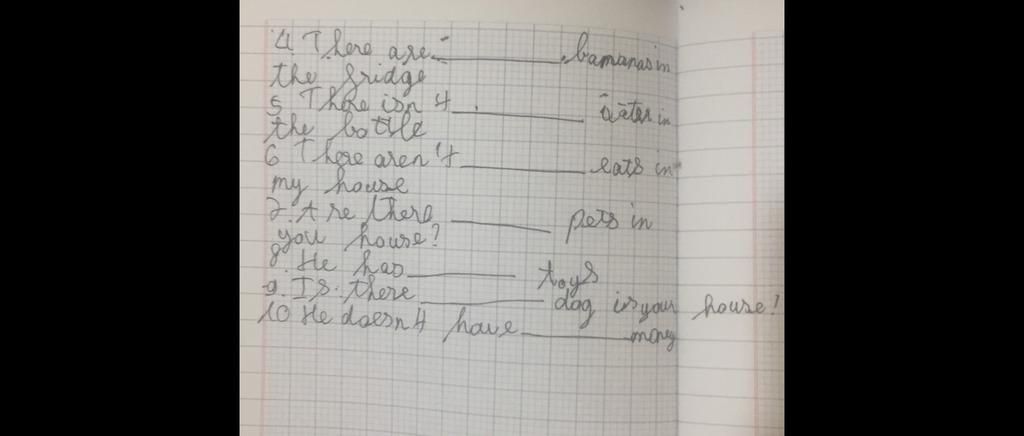 4. There are __________ bananas in
the fridge
5 There isn't __________ water in
the bottle
6 There aren't __________ cats in
my house
7. Are there __________ pets in
you house?
8. He has __________ toys
9. Is there __________ dog in your house?
10 He doesn't have __________ mony